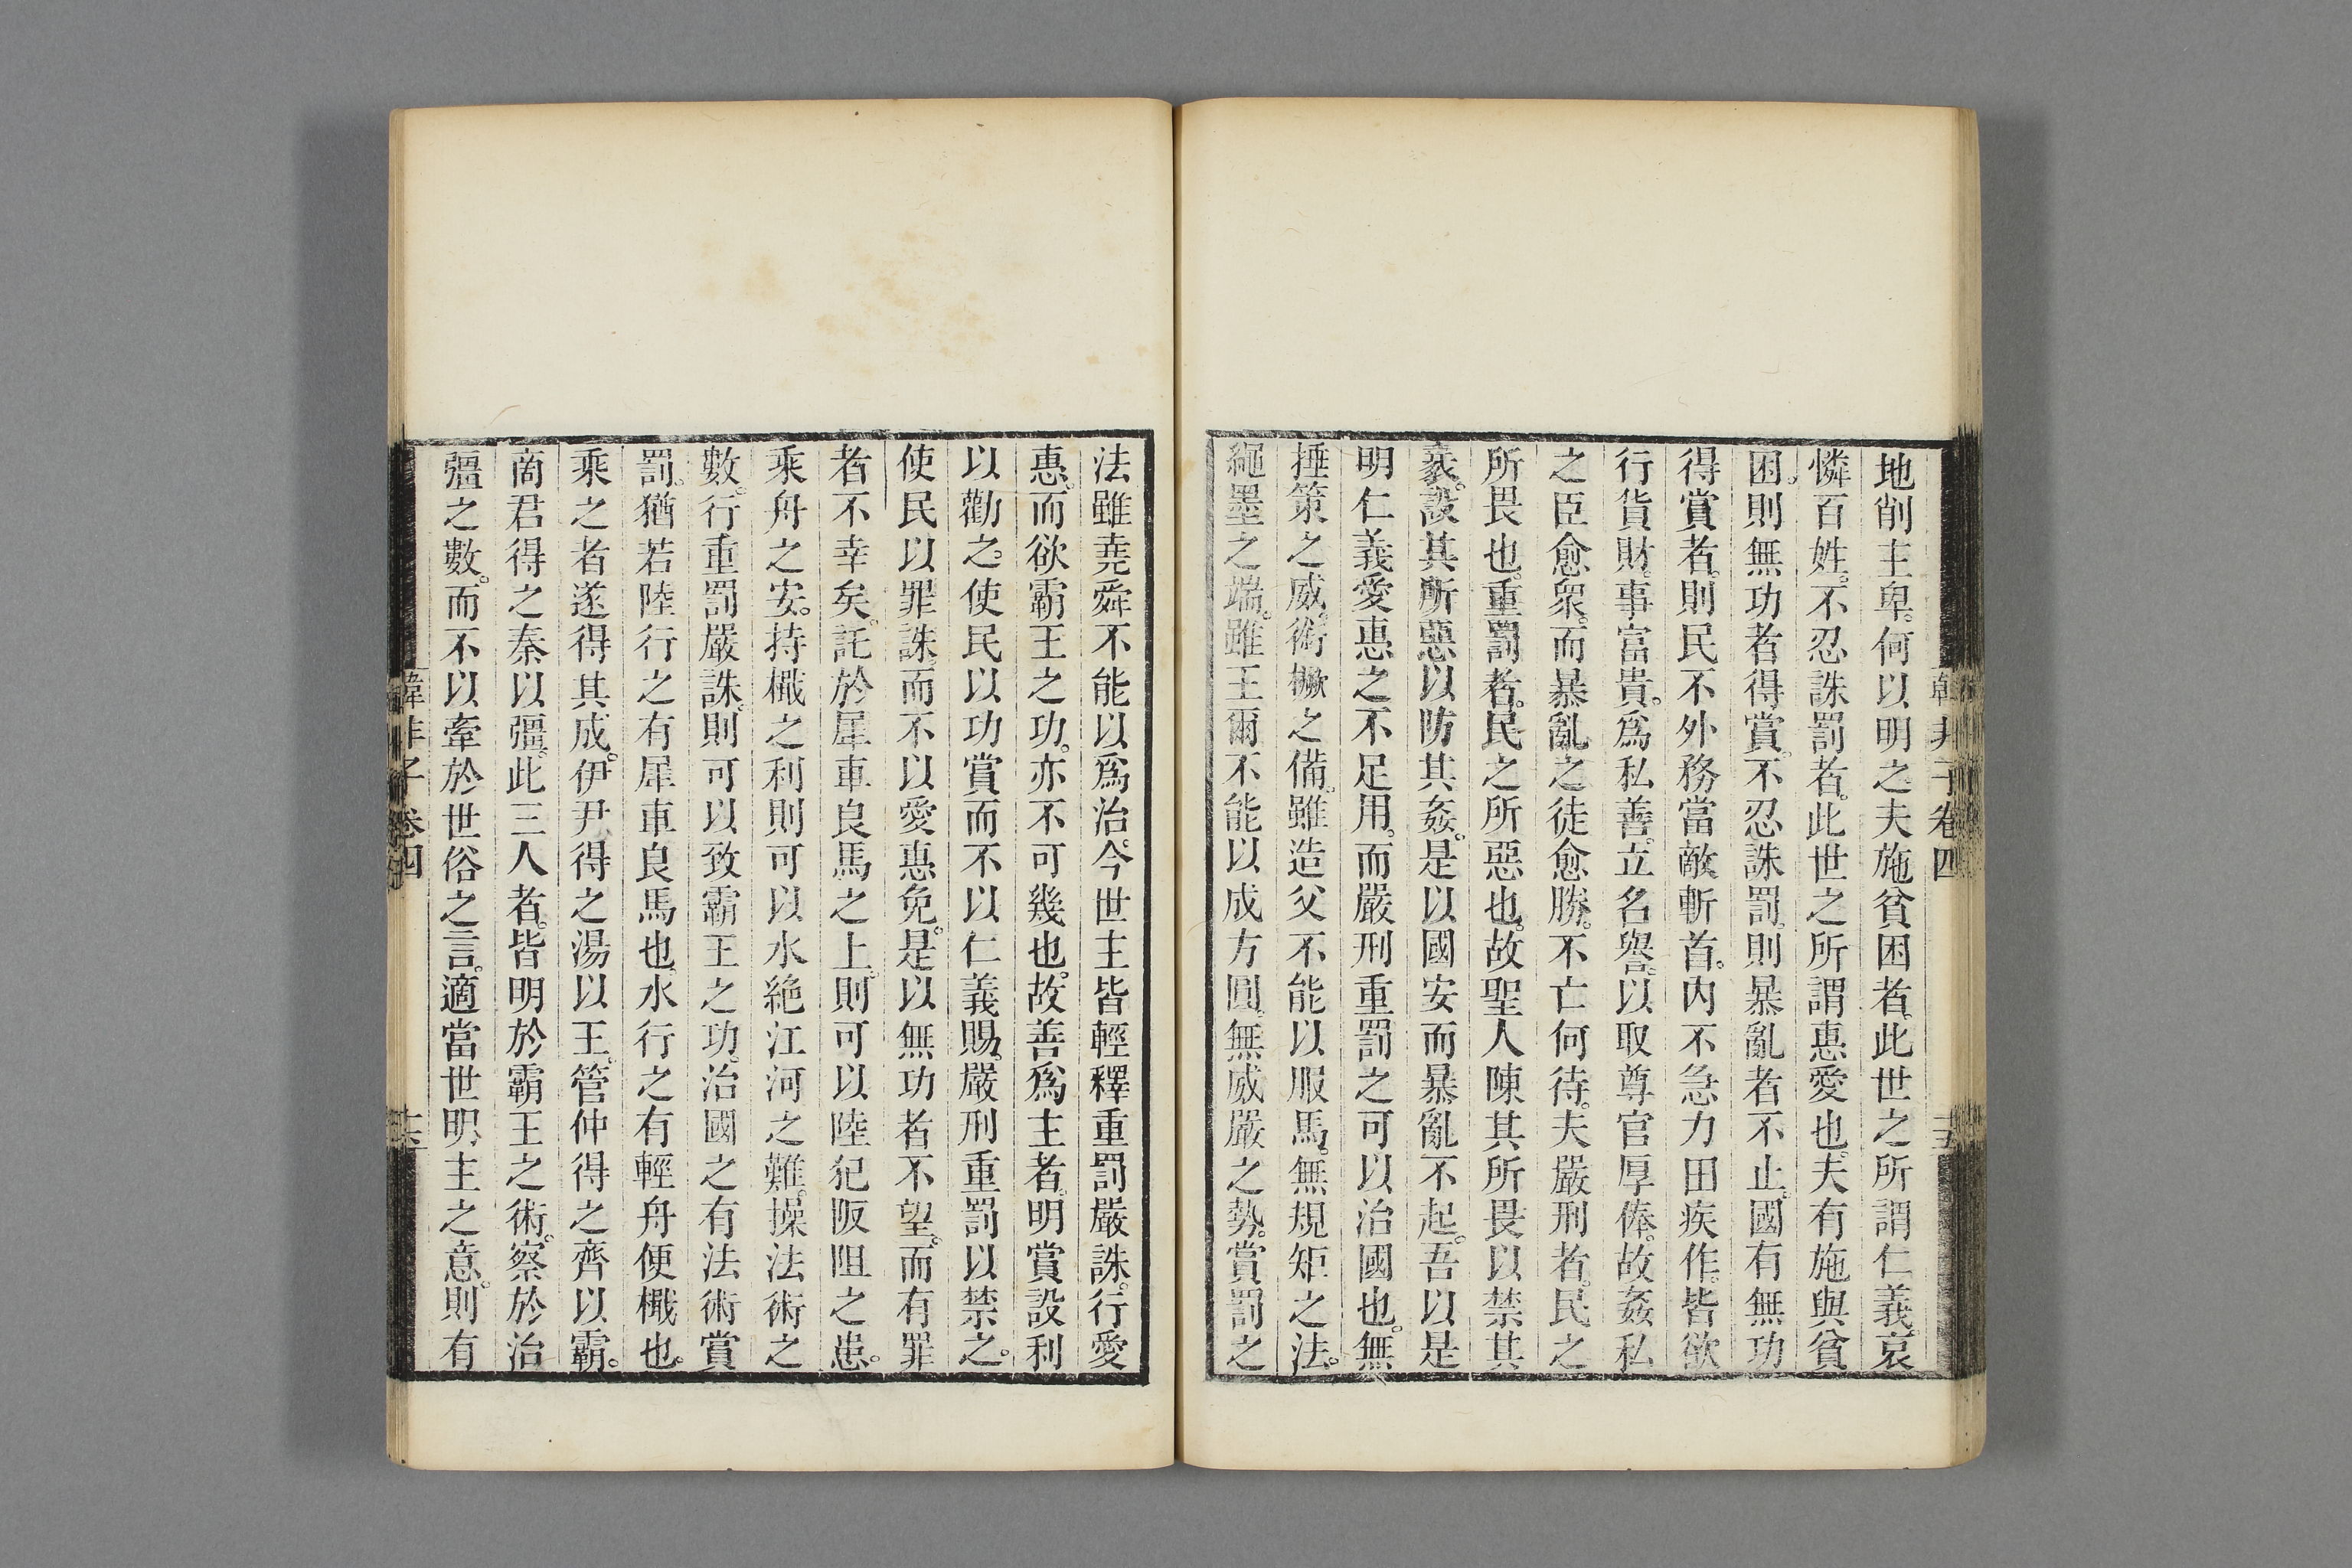 地削主卑。何以明之夫施貧困者。此世之所謂仁義。哀
憐百姓。不忍誅罰者。此世之所謂惠愛也。夫有施與貧
困。則無功者得賞。不忍誅罰。則暴亂者不止。國有無功
得賞者。則民不外務當敵斬首。內不急力田疾作。皆欲
行貨財。事富貴。爲私善。立名譽。以取尊官厚俸。故姦私
之臣愈衆。而暴亂之徒愈勝。不亡何待。夫嚴刑者。民之
所畏也。重罰者。民之所惡也。故聖人陳其所畏以禁其
衺。設其所惡以防其姦。是以國安而暴亂不起。吾以是
明仁義愛惠之不足用。而嚴刑重罰之可以治國也。無
捶策之威。銜橛之備。雖造父不能以服馬。無規矩之法。
繩墨之端。雖王爾不能以成方圓。無威嚴之勢。賞罰之
韓非子卷四
十五
法雖堯舜不能以爲治。今世主皆輕釋重罰嚴誅。行愛
惠。而欲霸王之功。亦不可幾也。故善爲主者。明賞設利
以勸之。使民以功賞而不以仁義賜。嚴刑重罰以禁之。
使民以罪誅。而不以愛惠免。是以無功者不望。而有罪
者不幸矣。託於犀車良馬之上。則可以陸犯阪阻之患。
乘舟之安。持檝之利則可以水絶江河之難。操法術之
數。行重罰嚴誅。則可以致霸王之功。治國之有法術賞
罰。猶若陸行之有犀車良馬也。水行之有輕舟便檝也。
乘之者遂得其成。伊尹得之湯以王。管仲得之齊以霸。
商君得之秦以彊。此三人者。皆明於霸王之術。察於治
彊之數。而不以牽於世俗之言。適當世明主之意。則有
韓非子卷四
十六